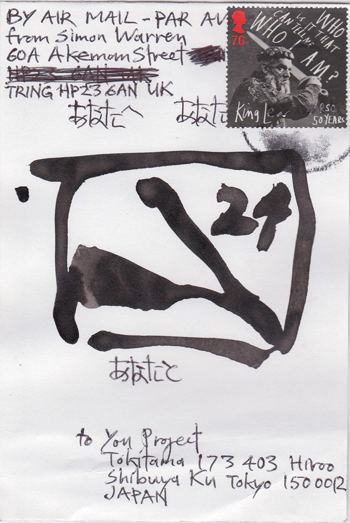 BY AIR MAIL - PAR AV
from Simon Warren
60A Akeman Street
TRING HP23 6AN UK
76
WHO IS IT THAT CAN TELL ME WHO I AM?
King L
RSC
50 YEARS
あなたへ
あなた
24
あなたと
to You Project
Tokitama 173 403 Hiroo
Shibuya Ku Tokyo 150 0012
JAPAN